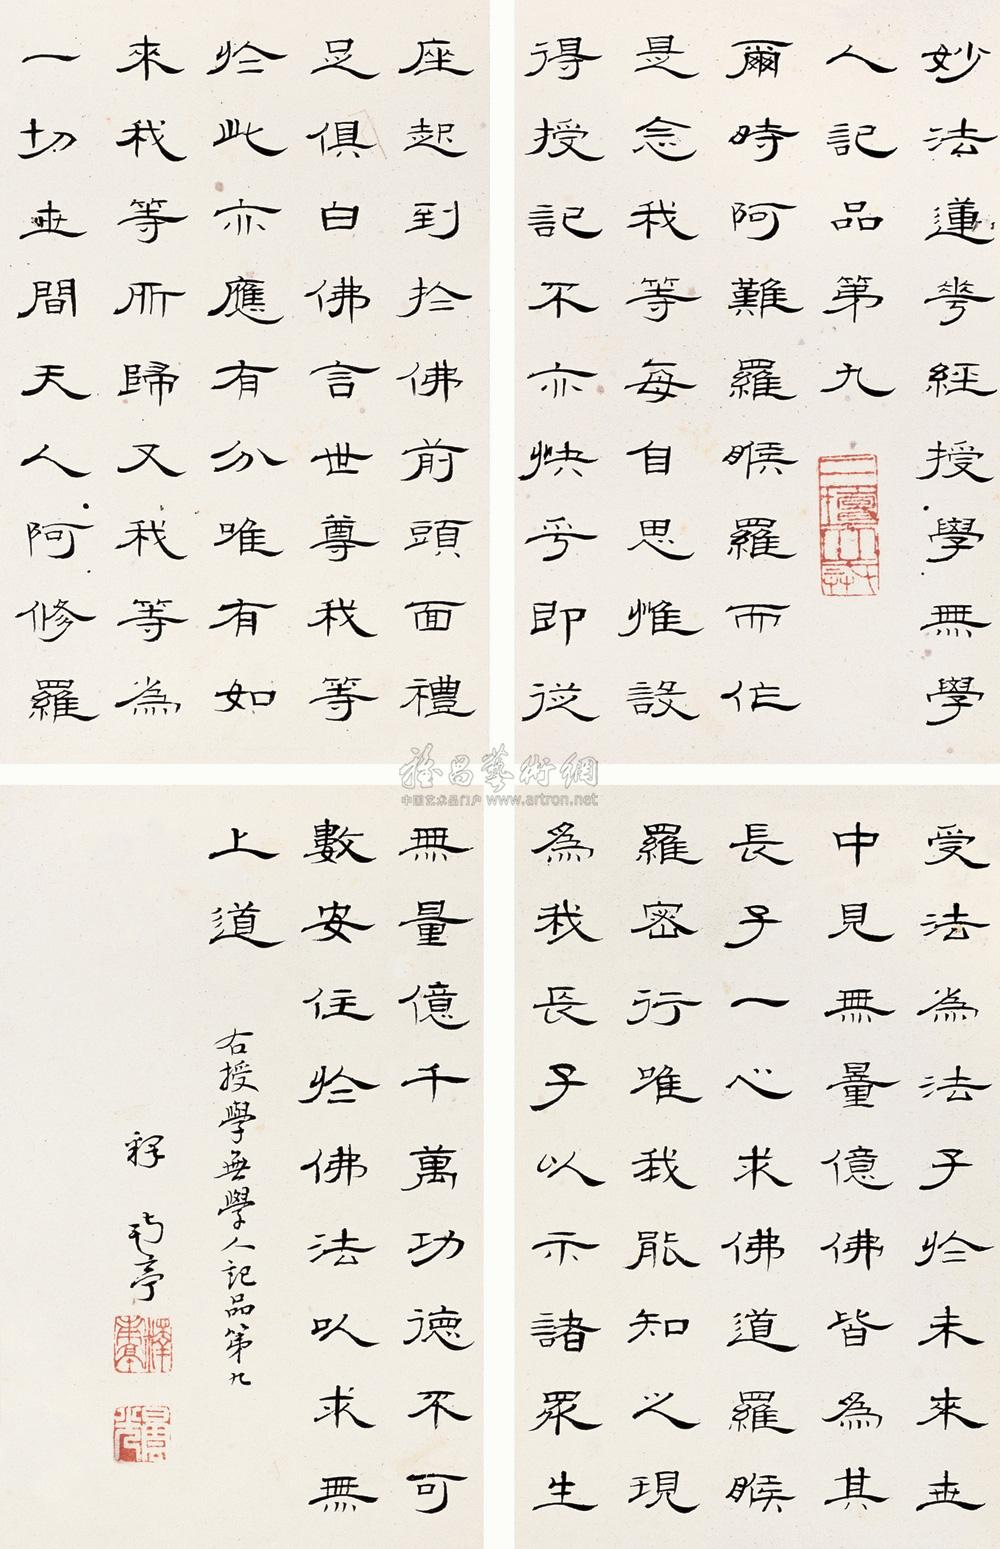 妙法蓮華經授學無學
人記品第九
爾時阿難羅睺羅而作
是念我等每自思惟設
得授記不亦快乎即從
座起到於佛前頭面禮
足俱白佛言世尊我等
於此亦應有分唯有如
來我等所歸又我等為
一切世間天人阿修羅
雅昌藝術網
中国艺术品门户 www.artron.net
受法為法子於未來世
中見無量億佛皆為其
長子一心求佛道羅睺
羅密行唯我能知之現
為我長子以示諸眾生
無量億千萬功德不可
數安住於佛法以求無
上道
右授學無學人記品第九
釋 亭